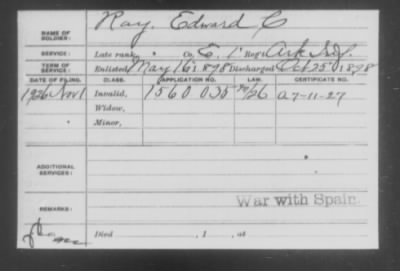 NAME OF SOLDIER: Ray, Edward C
SERVICE: Late rank, " Co. E, 1" Reg't Ark Inf.
TERM OF SERVICE: Enlisted May 16 1898 Discharged Oct 25 1898
DATE OF FILING. CLASS. APPLICATION NO. LAW. CERTIFICATE NO.
1926 Nov 1 Invalid, 1560 035 26 a 7-11-27
Widow,
Minor,
ADDITIONAL SERVICES:
War with Spain.
REMARKS:
Died , 1 , at